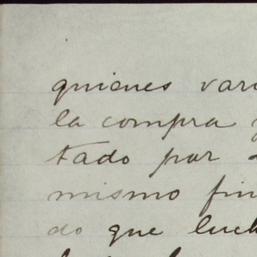 quienes vari
la compra y
tado por
mismo fin
do que luch